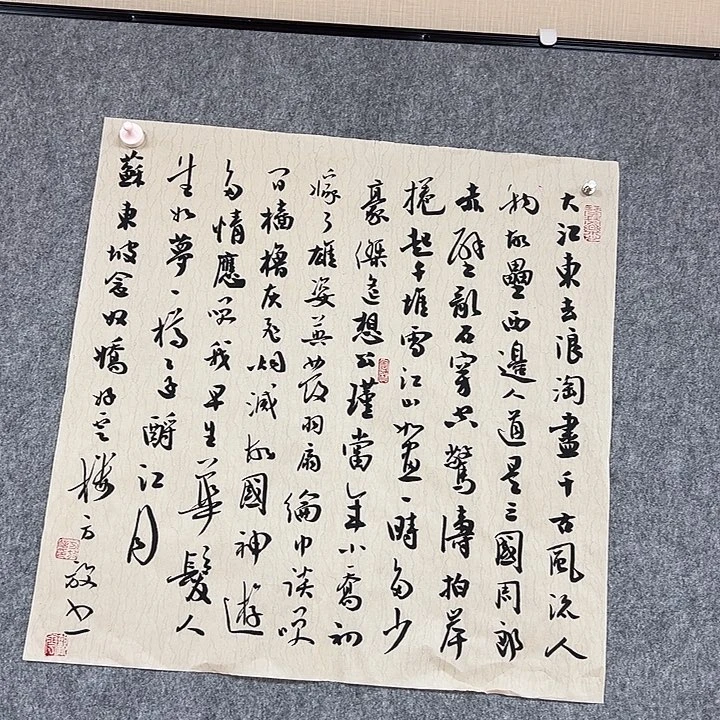 大江東去浪淘盡千古風流人
物故壘西邊人道是三國周郎
赤壁亂石穿空驚濤拍岸
捲起千堆雪江山如畫一時多少
豪傑遙想公瑾當年小喬初
嫁了雄姿英發羽扇綸巾談笑
間檣櫓灰飛烟滅故國神遊
多情應笑我早生華髮人
生如夢一樽還酹江月
蘇東坡念奴嬌好雲樓方